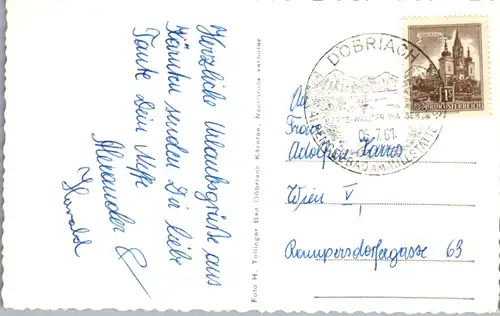 Herzliche Urlaubsgrüße aus
Kärnten senden Dir liebe
Tante Dein Neffe
Alexander &
Harald
Foto H. Tollinger Bad Döbriach Kärnten, Nachdruck verboten
DÖBRIACH
06.7.61.
REPUBLIK ÖSTERREICH
An
Frau
Adolfine Harris
Wien V,
Rampersdorfergasse 63